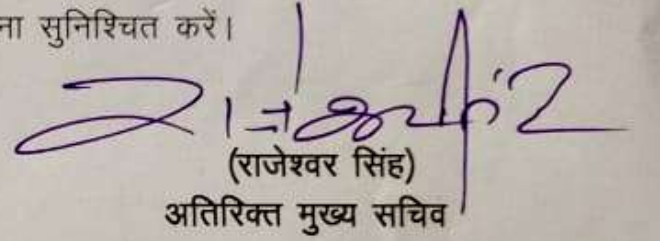 ना सुनिश्चित करें।
(राजेश्वर सिंह)
अतिरिक्त मुख्य सचिव